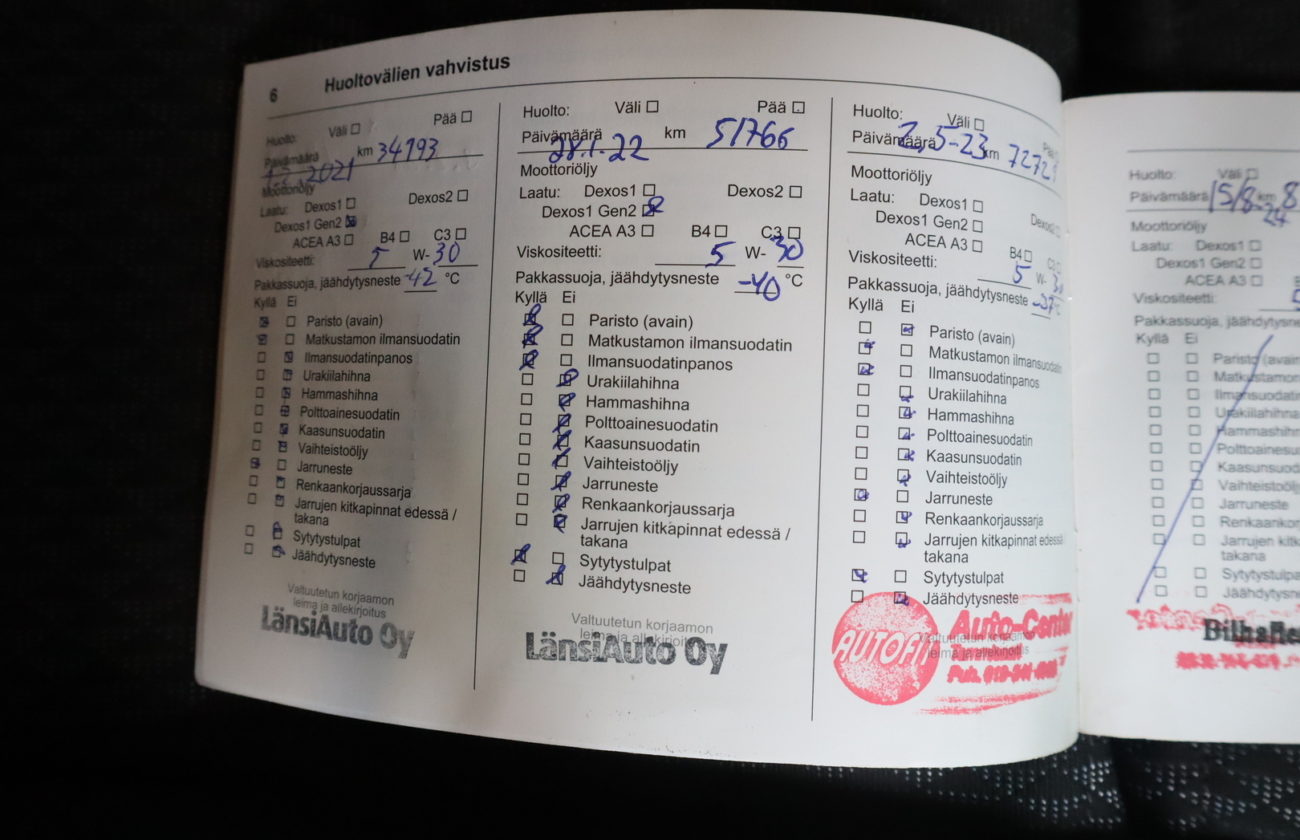 6 Huoltovälien vahvistus
Huolto: Väli Pää
Päivämäärä 2021 km 34193
Moottoriöljy
Laatu: Dexos1 Dexos2
Dexos1 Gen2
ACEA A3 B4 C3
Viskositeetti: 5 W- 30
Pakkassuoja, jäähdytysneste -42 °C
Kyllä Ei
Paristo (avain)
Matkustamon ilmansuodatin
Ilmansuodatinpanos
Urakiilahihna
Hammashihna
Polttoainesuodatin
Kaasunsuodatin
Vaihteistoöljy
Jarruneste
Renkaankorjaussarja
Jarrujen kitkapinnat edessä /
takana
Sytytystulpat
Jäähdytysneste
Valtuutetun korjaamon
leima ja allekirjoitus
LänsiAuto Oy
Huolto: Väli Pää
Päivämäärä 28.1.22 km 51766
Moottoriöljy
Laatu: Dexos1 Dexos2
Dexos1 Gen2
ACEA A3 B4 C3
Viskositeetti: 5 W- 30
Pakkassuoja, jäähdytysneste -40 °C
Kyllä Ei
Paristo (avain)
Matkustamon ilmansuodatin
Ilmansuodatinpanos
Urakiilahihna
Hammashihna
Polttoainesuodatin
Kaasunsuodatin
Vaihteistoöljy
Jarruneste
Renkaankorjaussarja
Jarrujen kitkapinnat edessä /
takana
Sytytystulpat
Jäähdytysneste
Valtuutetun korjaamon
leima ja allekirjoitus
LänsiAuto Oy
Huolto: Väli Pää
Päivämäärä 2.5-23 km 72729
Moottoriöljy
Laatu: Dexos1 Dexos2
Dexos1 Gen2
ACEA A3 B4 C3
Viskositeetti: 5 W- 30
Pakkassuoja, jäähdytysneste
Kyllä Ei
Paristo (avain)
Matkustamon ilmansuodatin
Ilmansuodatinpanos
Urakiilahihna
Hammashihna
Polttoainesuodatin
Kaasunsuodatin
Vaihteistoöljy
Jarruneste
Renkaankorjaussarja
Jarrujen kitkapinnat edessä
takana
Sytytystulpat
Jäähdytysneste
Valtuutetun korjaamon
leima ja allekirjoitus
AUTOFIT Auto-Center
Huolto: Väli
Päivämäärä 15/8-24 km 8
Moottoriöljy
Laatu: Dexos1
Dexos1 Gen2
ACEA A3
Viskositeetti: 5
Pakkassuoja, jäähdytysne
Kyllä Ei
Paristo (avain
Matkustamon
Ilmansuodatin
Urakiilahihna
Hammashihn
Polttoainesu
Kaasunsuod
Vaihteistoöl
Jarruneste
Renkaankor
Jarrujen kit
takana
Sytytystulpa
Jäähdytysne